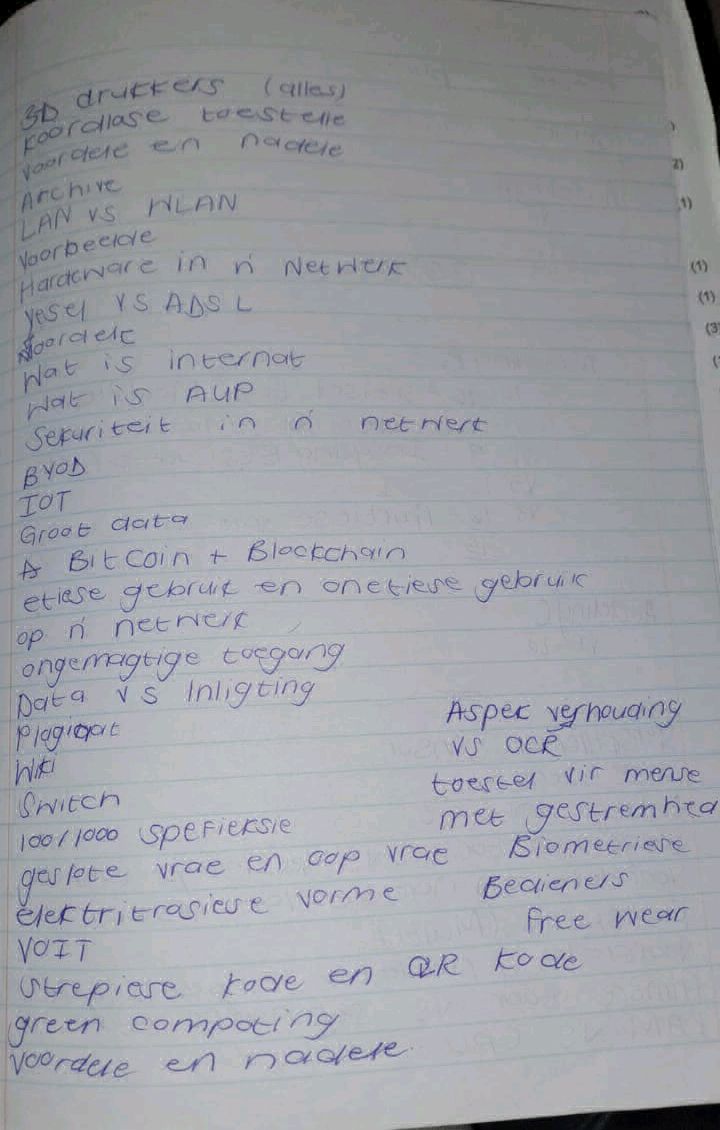 3D drukkers (alles)
koordlase toestelle
voordele en nadele
Archive
LAN vs WLAN
Voorbeelde
Hardeware in ń Netwerk
Vesel VS ADSL
Voordele
Wat is internat
Wat is AUP
Sekuriteit in ń netwerk
BYOD
IOT
Groot data
Bitcoin + Blockchain
etiese gebruik en onetiese gebruik
op ń netwerk
ongemagtige toegang
Data VS Inligting
Plagiaat
Aspek verhouding
Wiki
vs OCR
Switch
toestel vir mense
100/1000 spefieksie
met gestremhed
geslote vrae en oop vrae
Biometriese
elektritrasiese vorme
Bedieners
VOIT
Free wear
Strepiese kode en QR kode
green compoting
voordele en nadele.
(1)
(1)